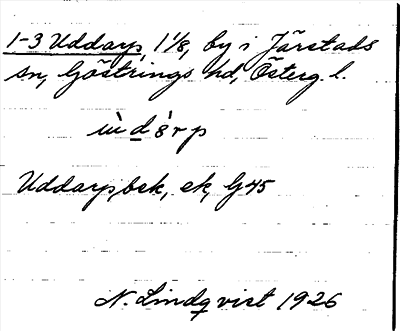 1-3 Uddarp, 1 1/8, by i Järstads
sn, Göstrings hd, Österg. l.
ùdàrp
Uddarp, bsk, ek, G 45
N. Lindqvist 1926